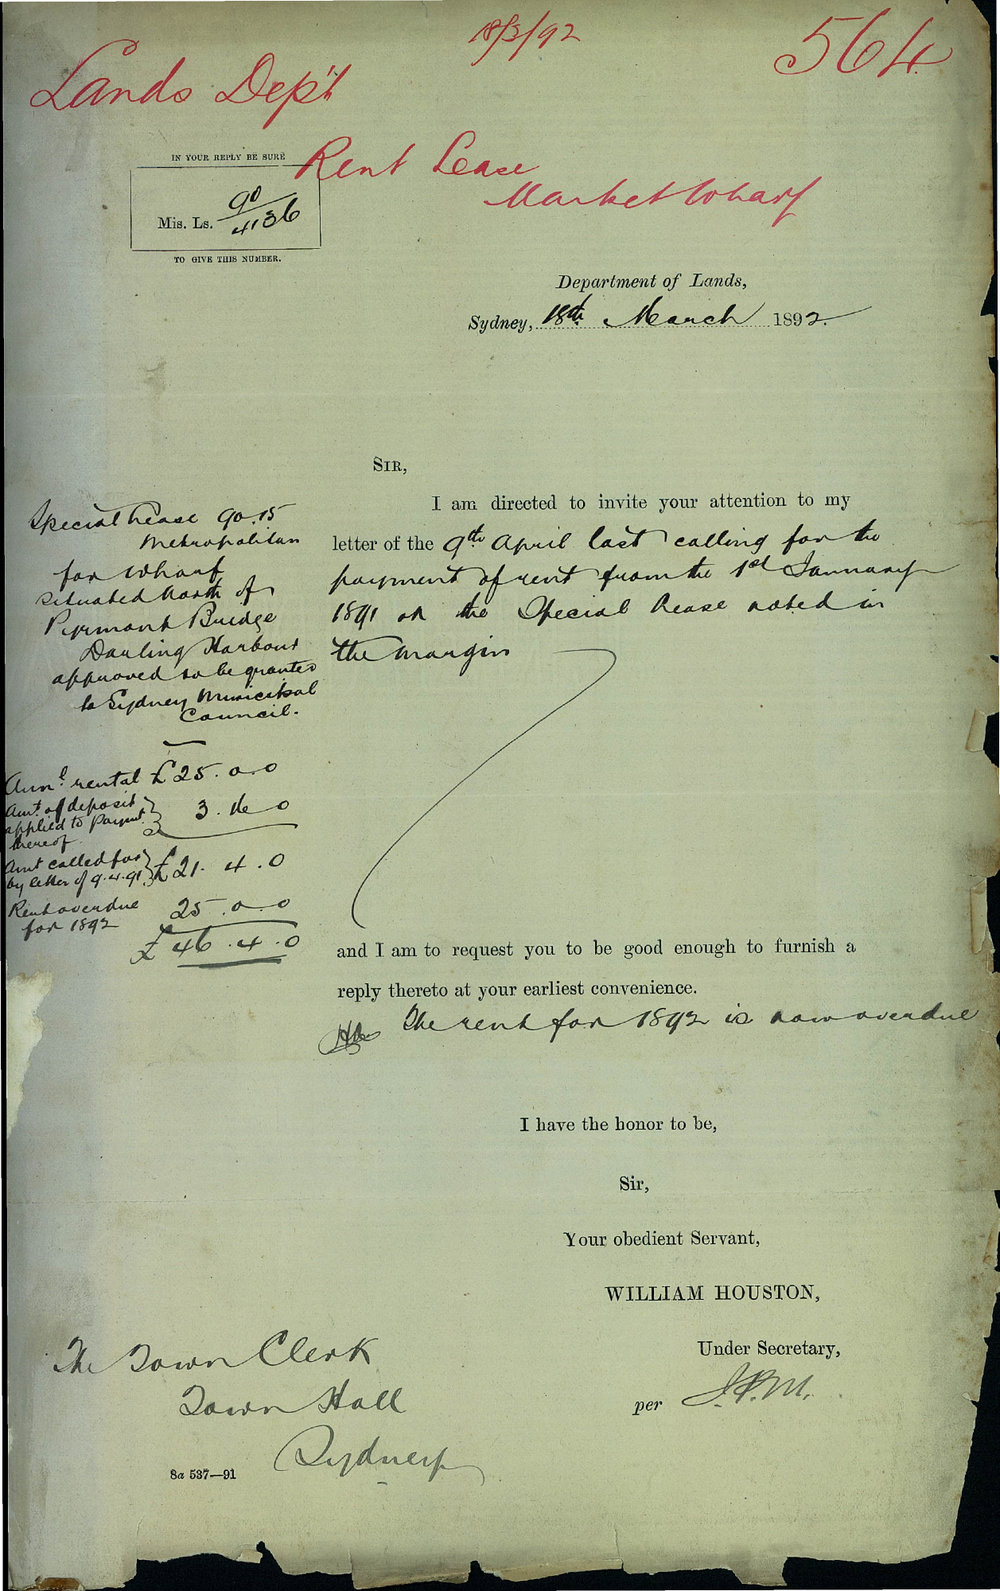 18/3/92
564
Lands Dep't
Rent Lease
Market Wharf
IN YOUR REPLY BE SURE
Mis. Ls. 90/4136
TO GIVE THIS NUMBER.
Department of Lands,
Sydney, 18th March 1892.
SIR,
I am directed to invite your attention to my
letter of the 9th April last calling for the
payment of rent from the 1st January
1891 on the Special Lease noted in
the margin
Special Lease 90.15
Metropolitan
for Wharf
situated North of
Pyrmont Bridge
Darling Harbour
approved to be granted
to Sydney Municipal
Council.
Annl. rental £25.0.0
Amt. of deposit
applied to paymt.
thereof
3.16.0
Amt called for
by letter of 9.4.91.
£21.4.0
Rent overdue
for 1892
25.0.0
£46.4.0
and I am to request you to be good enough to furnish a
reply thereto at your earliest convenience.
The rent for 1892 is now overdue
I have the honor to be,
Sir,
Your obedient Servant,
WILLIAM HOUSTON,
Under Secretary,
per
The Town Clerk
Town Hall
Sydney
8a 537—91